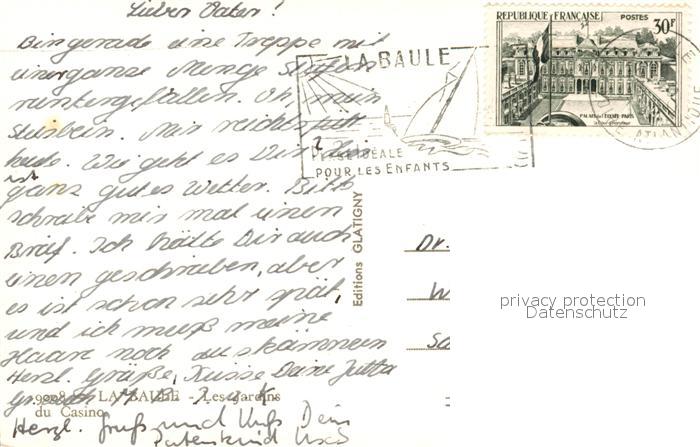 Lieber Vater!
Bin gerade eine Treppe mit
einer ganze Menge Stufen
runtergefallen. Oh, mein
Steißbein. Mir reichts für
heute. Wie geht es Dir? Hier
ist
ganz gutes Wetter. Bitte
schreibe mir mal einen
Brief. Ich hätte Dir auch
einen geschrieben, aber
es ist schon sehr spät,
und ich muß meine
Haare noch auskämmen
Herzl. Grüße, Küsse Deine Jutta
9008 - LA BAULE - Les Jardins
du Casino
Herzl. Gruß und Kuß Dein
Patenkind
REPUBLIQUE FRANÇAISE POSTES 30F
PALAIS de l'ELYSÉE PARIS
LA BAULE
PLAGE IDÉALE
POUR LES ENFANTS
ATLANTIQUE
Editions GLATIGNY
Dr.
W
Sa
privacy protection
Datenschutz